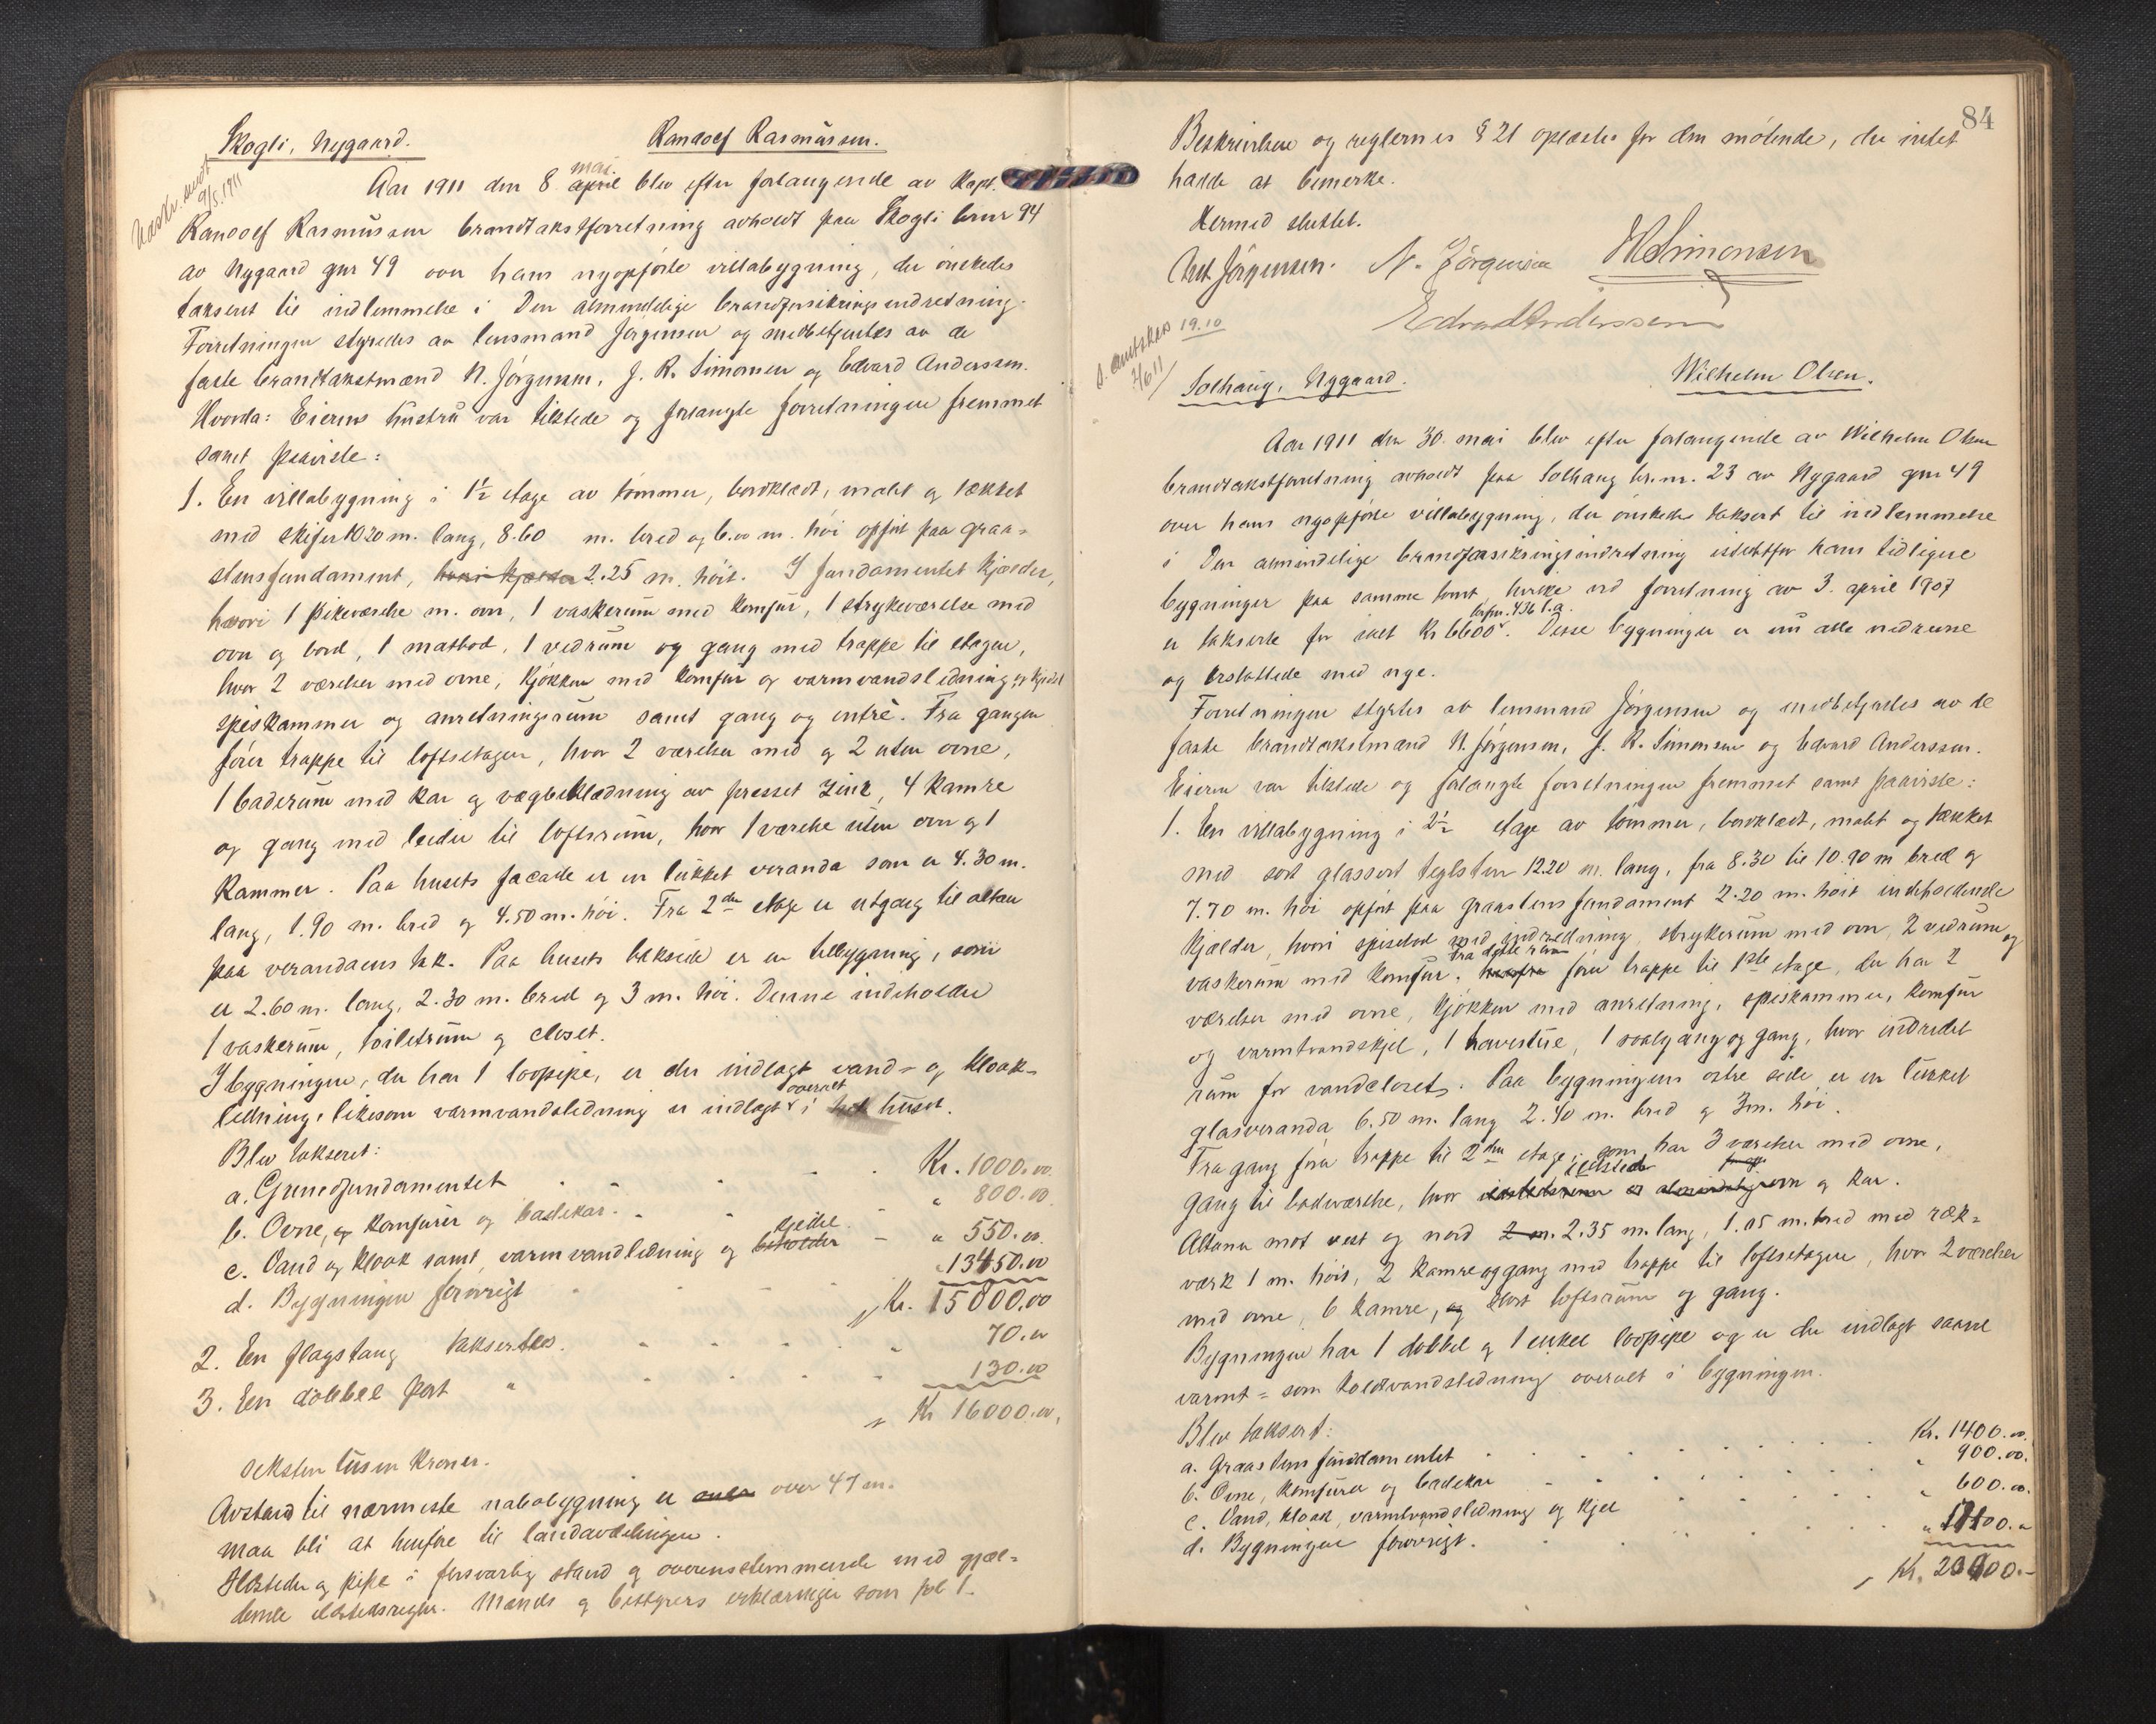 Skogli, Nygaard. Randolf Rasmussen.
9/5.1911
Aar 1911 den 8. april mai blev efter forlangende av kapt.
Randolf Rasmussen brandtakstforretning avholdt paa Skogli brnr 94
av Nygaard gnr 49 over hans nyopførte villabygning, der ønskedes
taksert til indlemmelse i Den almindelige brandforsikringsindretning.
Forretningen styredes av lensmand Jørgensen og medbetjentes av de
faste brandtakstmænd N. Jørgensen, J. R. Simonsen og Edvard Anderssen.
Hvorda: Eierens hustru var tilstede og forlangte forretningen fremmet
samt paaviste:
1. En villabygning i 1½ etage av tømmer, bordklædt, malt og tækket
med skifer 10.20 m. lang, 8.60 m. bred og 6.00 m. høi opført paa graa-
stensfundament, hvori kjælder 2.25 m. høit. I fundamentet kjælder,
hvori 1 pikeværelse m. ovn, 1 vaskerum med komfur, 1 strykeværelse med
ovn og bord, 1 matbod, 1 vedrum og gang med trappe til etagen,
hvor 2 værelser med ovne, kjøkken med komfur og varmvandsledning og kjedel
spiskammer og anretningsrum samt gang og entré. Fra gangen
fører trappe til loftsetagen, hvor 2 værelser med og 2 uten ovne,
1 baderum med kar og vægbeklædning av presset zink, 4 kamre
og gang med leider til loftsrum, hvor 1 værelse uten ovn og 1
kammer. Paa husets facade er en lukket veranda som er 4.30 m.
lang, 1.90 m. bred og 4.50 m. høi. Fra 2den etage er utgang til altan
paa verandaens tak. Paa husets bakside er en tilbygning, som
er 2.60 m. lang, 2.30 m. bred og 3 m. høi. Denne indeholder
1 vaskerum, toiletrum og closet.
I bygningen, der har 1 løpspipe, er der indlagt vand- og kloak-
ledning, likesom varmvandsledning er indlagt overalt i hele huset.
Blev takseret:
a. Grundfundamentet Kr. 1000.00
b. Ovne, og komfurer og badekar. " 800.00
c. Vand og kloak samt varmvandledning og beholder kjedel " 550.00
d. Bygningen forøvrigt " 13450.00
Kr. 15800.00
2. En flagstang taksertes. 70.00
3. En dobbel port " 130.00
Kr 16000.00
seksten tusen kroner.
Avstand til nærmeste nabobygning er over 47 m.
maa bli at henføre til landavdelingen.
Ildsteder og pipe i forsvarlig stand og overensstemmende med gjæl-
dende ildstedsregler. Mænds og bestyrers erklæringer som fol 1.
84
Beskrivelsen og reglernes § 21 oplæstes for den møtende, der intet
hadde at bemerke.
Hermed sluttet.
Chr. Jørgensen. N. Jørgensen JRSimonsen
Edvard Anderssen
19.10
7/6 11
Solhaug, Nygaard. Wilhelm Olsen.
Aar 1911 den 30. mai blev efter forlangende av Wilhelm Olsen
brandtakstforretning avholdt paa Solhaug br.nr. 23 av Nygaard gnr 49
over hans nyopførte villabygning, der ønskedes taksert til indlemmelse
i Den almindelige brandforsikringsindretning istedetfor hans tidligere
bygninger paa samme tomt, hvilke ved forretning av 3. april 1907
er takserte for ialt Kr 6600 brfnr. 436 l.a. Disse bygninger er nu alle nedrevne
og erstattede med nye.
Forretningen styrtes av lensmand Jørgensen og medbetjentes av de
faste brandtakstmænd N. Jørgensen, J. R. Simonsen og Edvard Anderssen.
Eieren var tilstede og forlangte forretningen fremmet samt paaviste:
1. En villabygning i 2½ etage av tømmer, bordklædt, malt og tækket
med sort glassert teglsten 12.20 m. lang, fra 8.30 til 10.90 m bred og
7.70 m. høi opført paa graastensfundament 2.20 m. høit indeholdende
kjælder, hvori spisebod med indredning, strykerum med ovn, 2 vedrum og
vaskerum med komfur. Herfra Fra dette rum fører trappe til 1ste etage, der har 2
værelser med ovne, kjøkken med anretning, spiskammer, komfur
og varmtvandskjel, 1 havestue, 1 svalgang og gang, hvor indredet
rum for vandcloset. Paa bygningens østre side er en lukket
glasveranda 6.50 m. lang 2.40 m. bred og 3 m. høi.
Fra gang fører trappe til 2den etage, som har 3 værelser med ovne,
gang til badeværelse, hvor ildsted ovn og kar.
Altaner mot vest og nord 2 m. 2.35 m. lang, 1.05 m. bred med ræk-
værk 1 m. høit, 2 kamre og gang med trappe til loftsetagen, hvor 2 værelser
med ovne, 6 kamre, og stort loftsrum og gang.
Bygningen har 1 dobbel og 1 enkel løpspipe og er der indlagt saavel
varmt- som koldtvandsledning overalt i bygningen.
Blev taksert:
a. Graastensfundamentet Kr. 1400.00
b. Ovne, komfurer og badekar " 900.00.
c. Vand, kloak, varmtvandsledning og kjel " 600.00.
d. Bygningen forøvrigt.